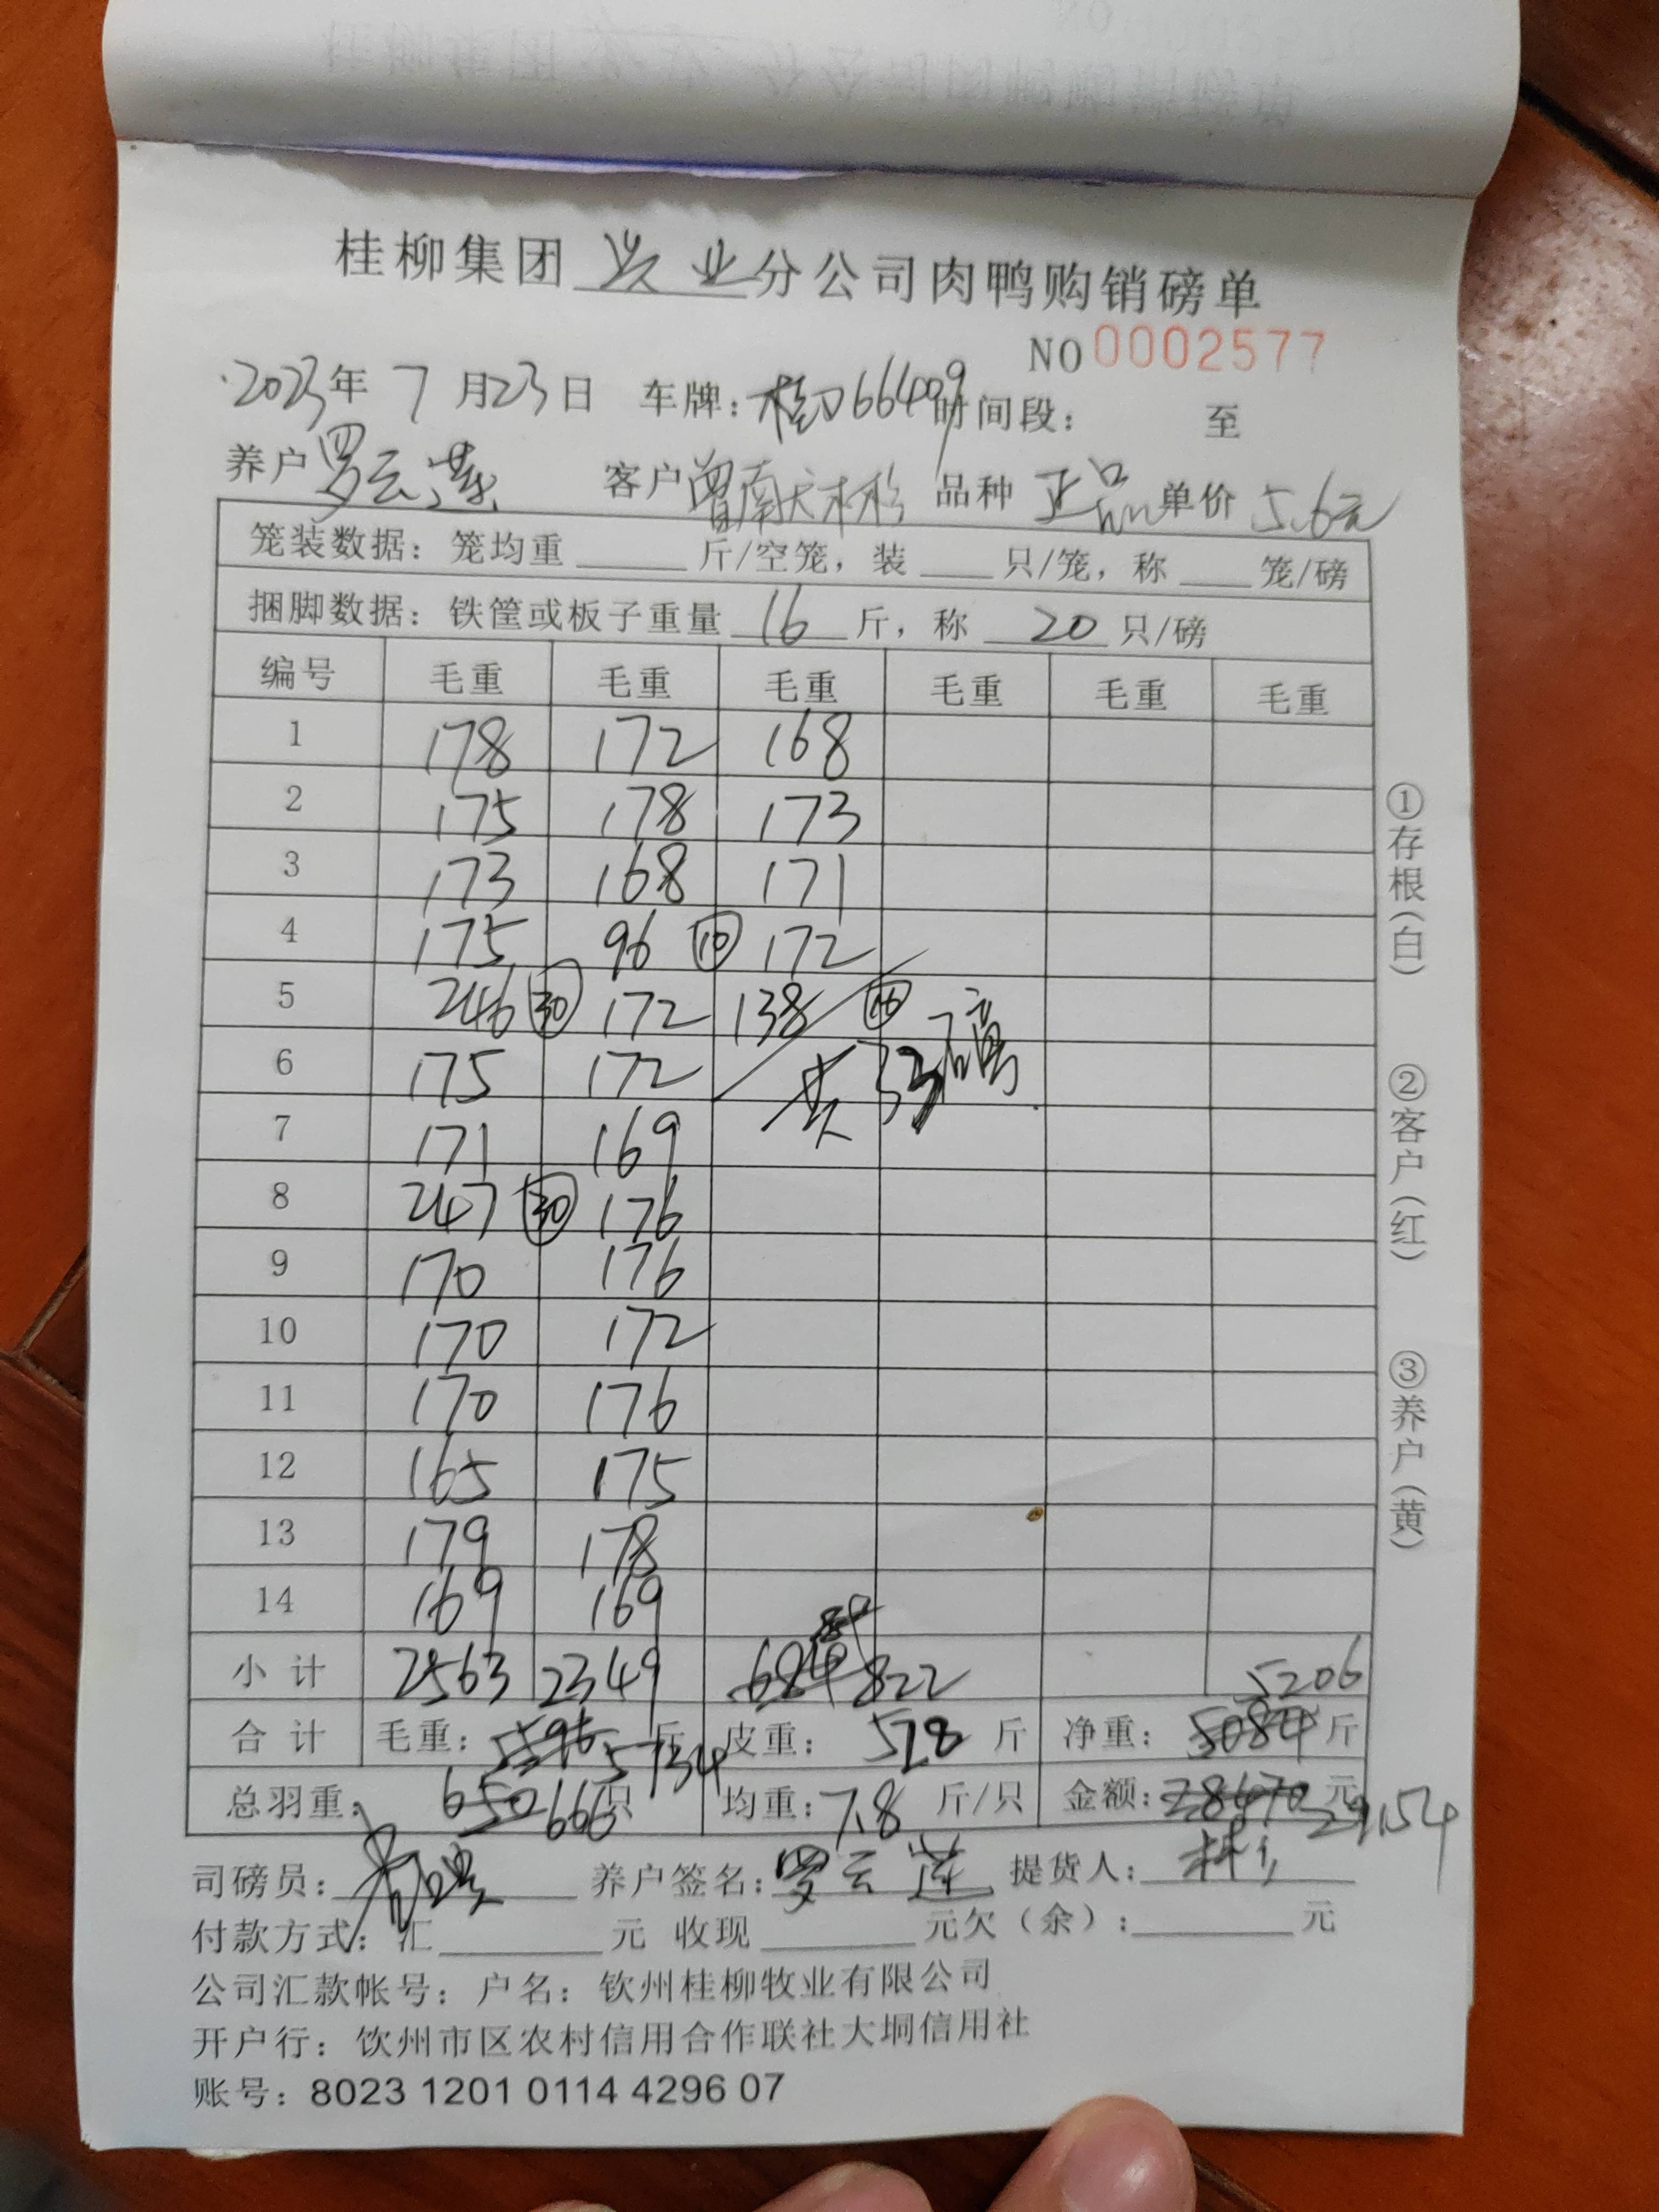 桂柳集团 兴业 分公司肉鸭购销磅单
NO 0002577
2023年 7 月 23 日 车牌: 桂 66409 时间段: 至
养户 罗云 客户 曾南天 品种 正品 单价 5.6元
笼装数据: 笼均重 斤/空笼, 装 只/笼, 称 笼/磅
捆脚数据: 铁筐或板子重量 16 斤, 称 20 只/磅
编号 毛重 毛重 毛重 毛重 毛重 毛重
1 178 172 168
2 175 178 173
3 173 168 171
4 175 96 ⑩ 172
5 246 ㉚ 172 138 ⑯
6 175 172 共 33磅
7 171 169
8 247 ㉚ 176
9 170 176
10 170 172
11 170 176
12 165 175
13 179 178
14 169 169
小 计 2563 2349 684 822 5206
合 计 毛重: 5596 5734 斤 皮重: 528 斤 净重: 5084 斤
总羽重: 650 666 只 均重: 7.8 斤/只 金额: 28470 元 29154
司磅员: 养户签名: 罗云莲 提货人:
付款方式: 汇 元 收现 元欠(余): 元
公司汇款帐号: 户名: 钦州桂柳牧业有限公司
开户行: 饮州市区农村信用合作联社大垌信用社
账号: 8023 1201 0114 4296 07
①存根(白)
②客户(红)
③养户(黄)